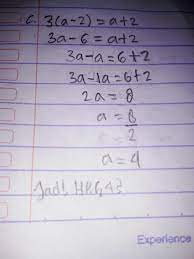 C. 3(a-2) = a+2
3a-6 = a+2
3a-a = 6+2
3a-1a = 6+2
2a = 8
a = 8/2
a = 4
Jadi HP {4}
Experience